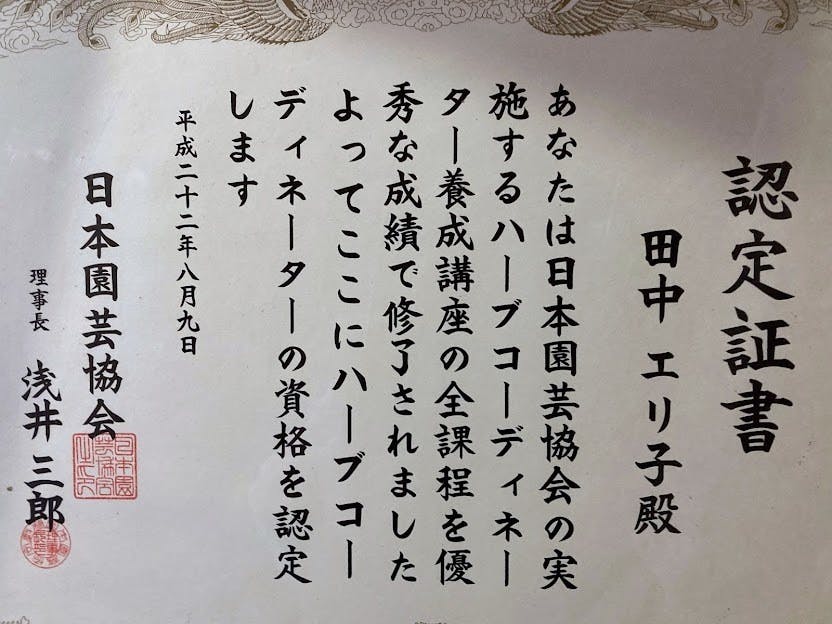 認定証書
田中 エリ子殿
あなたは日本園芸協会の実
施するハーブコーディネー
ター養成講座の全課程を優
秀な成績で修了されました
よってここにハーブコー
ディネーターの資格を認定
します
平成二十二年八月九日
日本園芸協会
理事長 浅井三郎